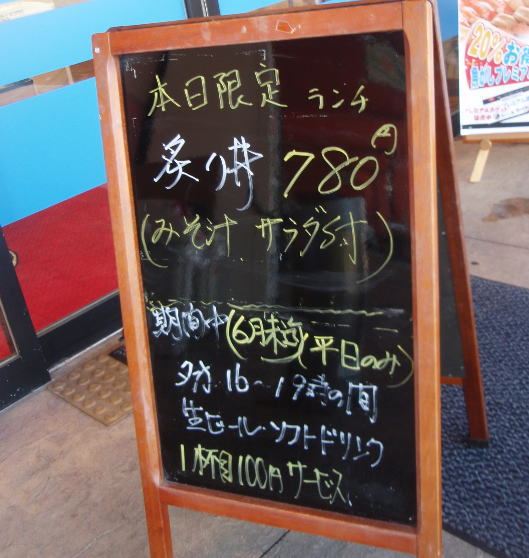 本日限定 ランチ
炙り丼 780円
(みそ汁 サラダ付)
期間中(6月末迄)(平日のみ)
夕方 16〜19時の間
生ビール・ソフトドリンク
1杯目100円サービス
20%お得